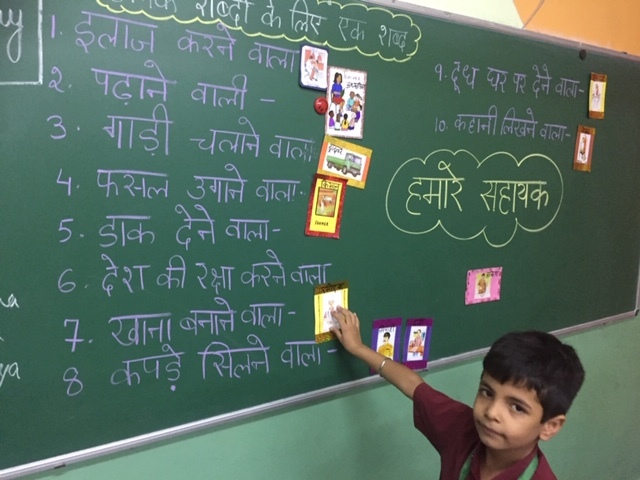 शब्दों के लिए एक शब्द
1. इलाज करने वाला
2. पढ़ाने वाली -
3. गाड़ी चलाने वाला
4. फसल उगाने वाला-
5. डाक देने वाला-
6. देश की रक्षा करने वाला
7. खाना बनाने वाला-
8 कपड़े सिलने वाला-
9. दूध घर पर देने वाला-
10. कहानी लिखने वाला-
हमारे सहायक